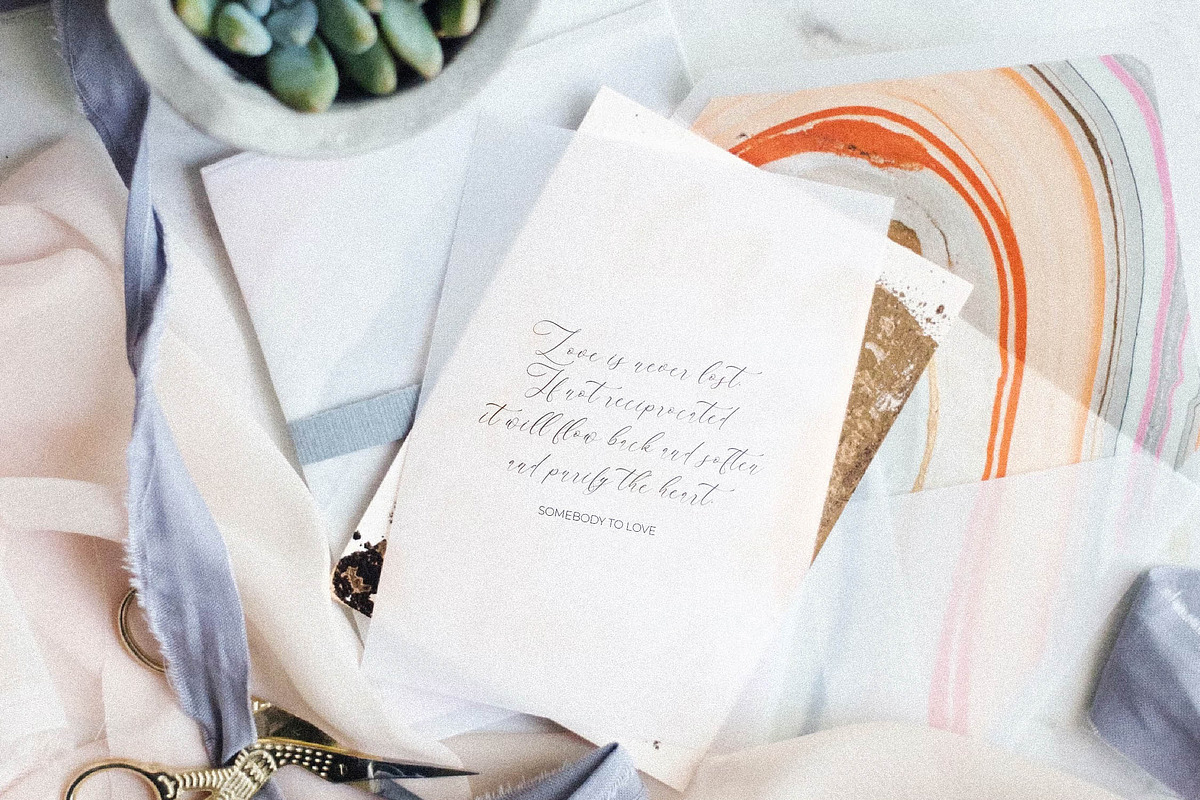 Love is never lost.
If not reciprocated
it will flow back and soften
and purify the heart.
SOMEBODY TO LOVE